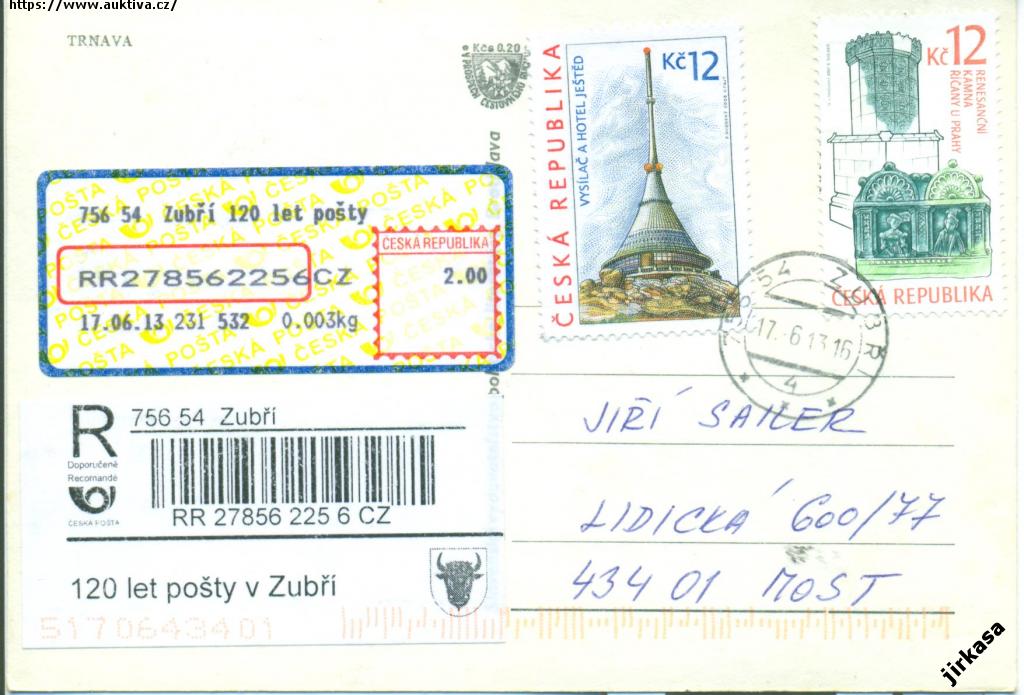 https://www.auktiva.cz/
TRNAVA
Kčs 0.20
ČESKÁ REPUBLIKA
VYSÍLAČ A HOTEL JEŠTĚD
Kč 12
Kč 12
RENESANČNÍ
KAMNA
ŘÍČANY U PRAHY
ČESKÁ REPUBLIKA
ČESKÁ POŠTA
756 54 Zubří 120 let pošty
ČESKÁ REPUBLIKA
RR278562256CZ
2.00
17.06.13 231 532 0.003kg
756 54 ZUBŘÍ
17.-6.13 16
4
R
756 54 Zubří
Doporučeně
Recomandé
ČESKÁ POŠTA
RR 27856 225 6 CZ
120 let pošty v Zubří
JIŘÍ SAILER
LIDICKÁ 600/77
434 01 MOST
5170643401
jirkasa